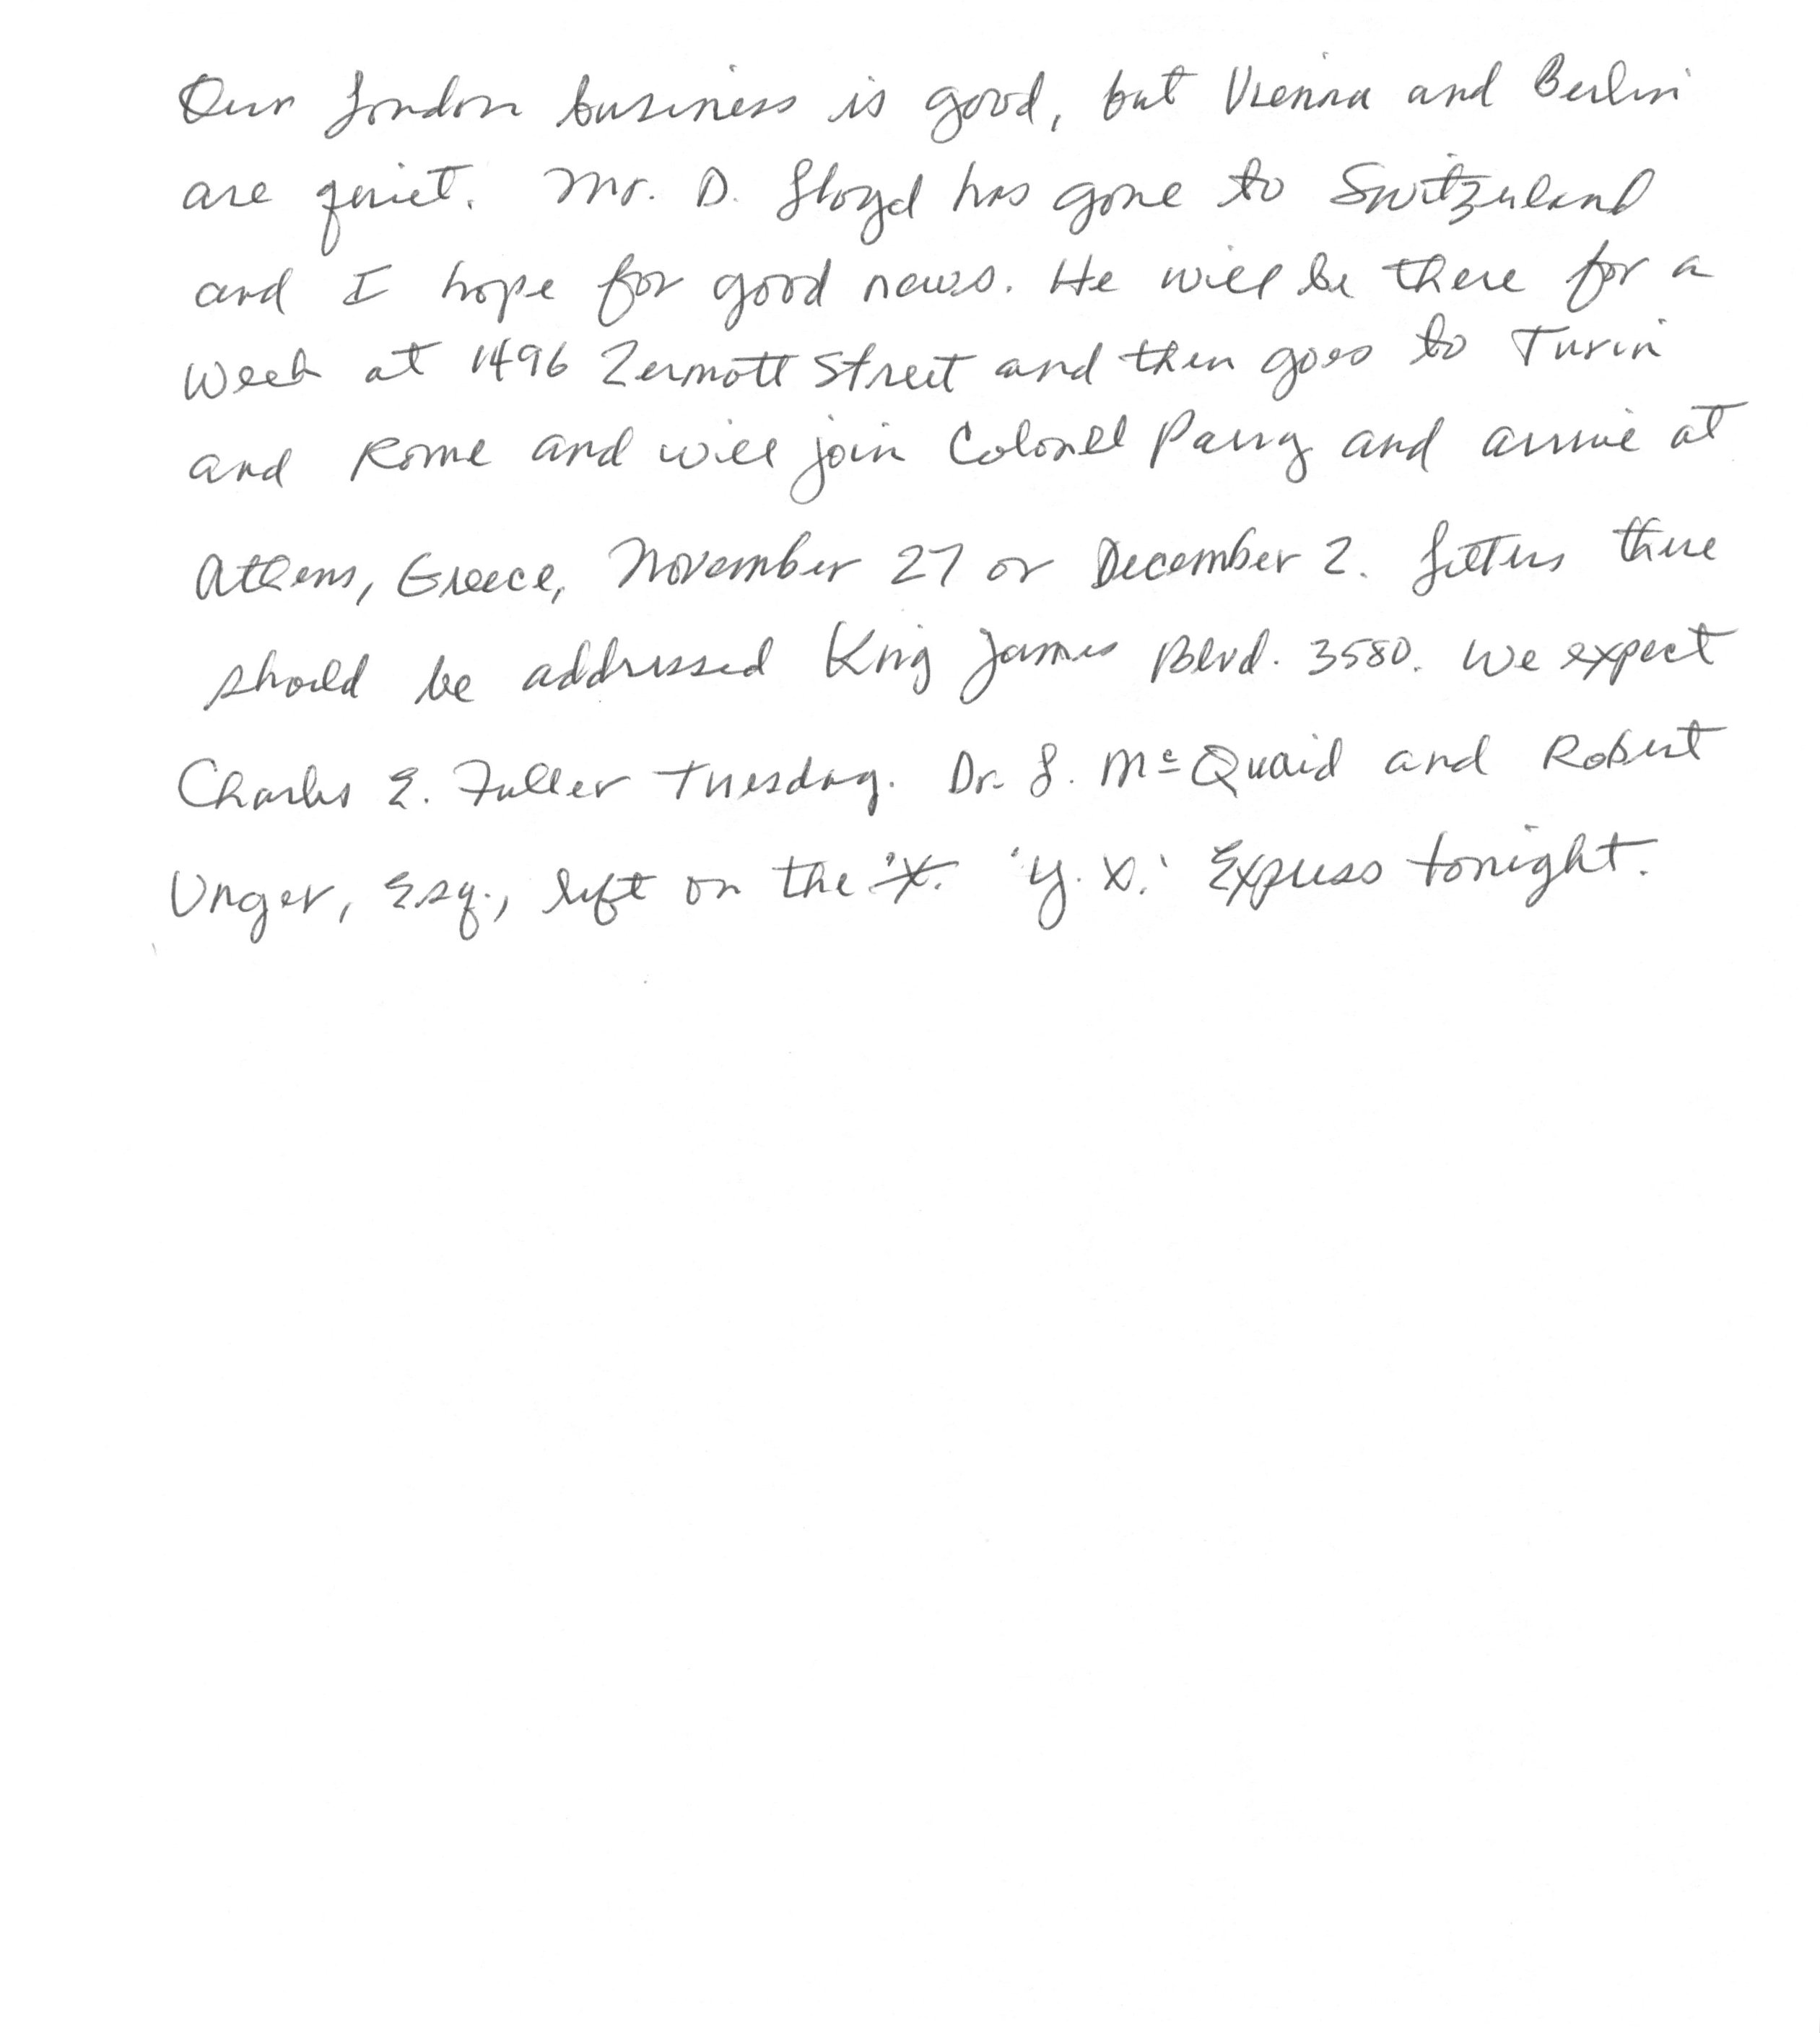 Our London business is good, but Vienna and Berlin
are quiet. Mr. D. Lloyd has gone to Switzerland
and I hope for good news. He will be there for a
week at 1496 Zermott Street and then goes to Turin
and Rome and will join Colonel Parry and arrive at
Athens, Greece, November 27 or December 2. Letters there
should be addressed King James Blvd. 3580. We expect
Charles E. Fuller Tuesday. Dr. L. McQuaid and Robert
Unger, Esq., left on the 'X. 'Y.X.' Express tonight.